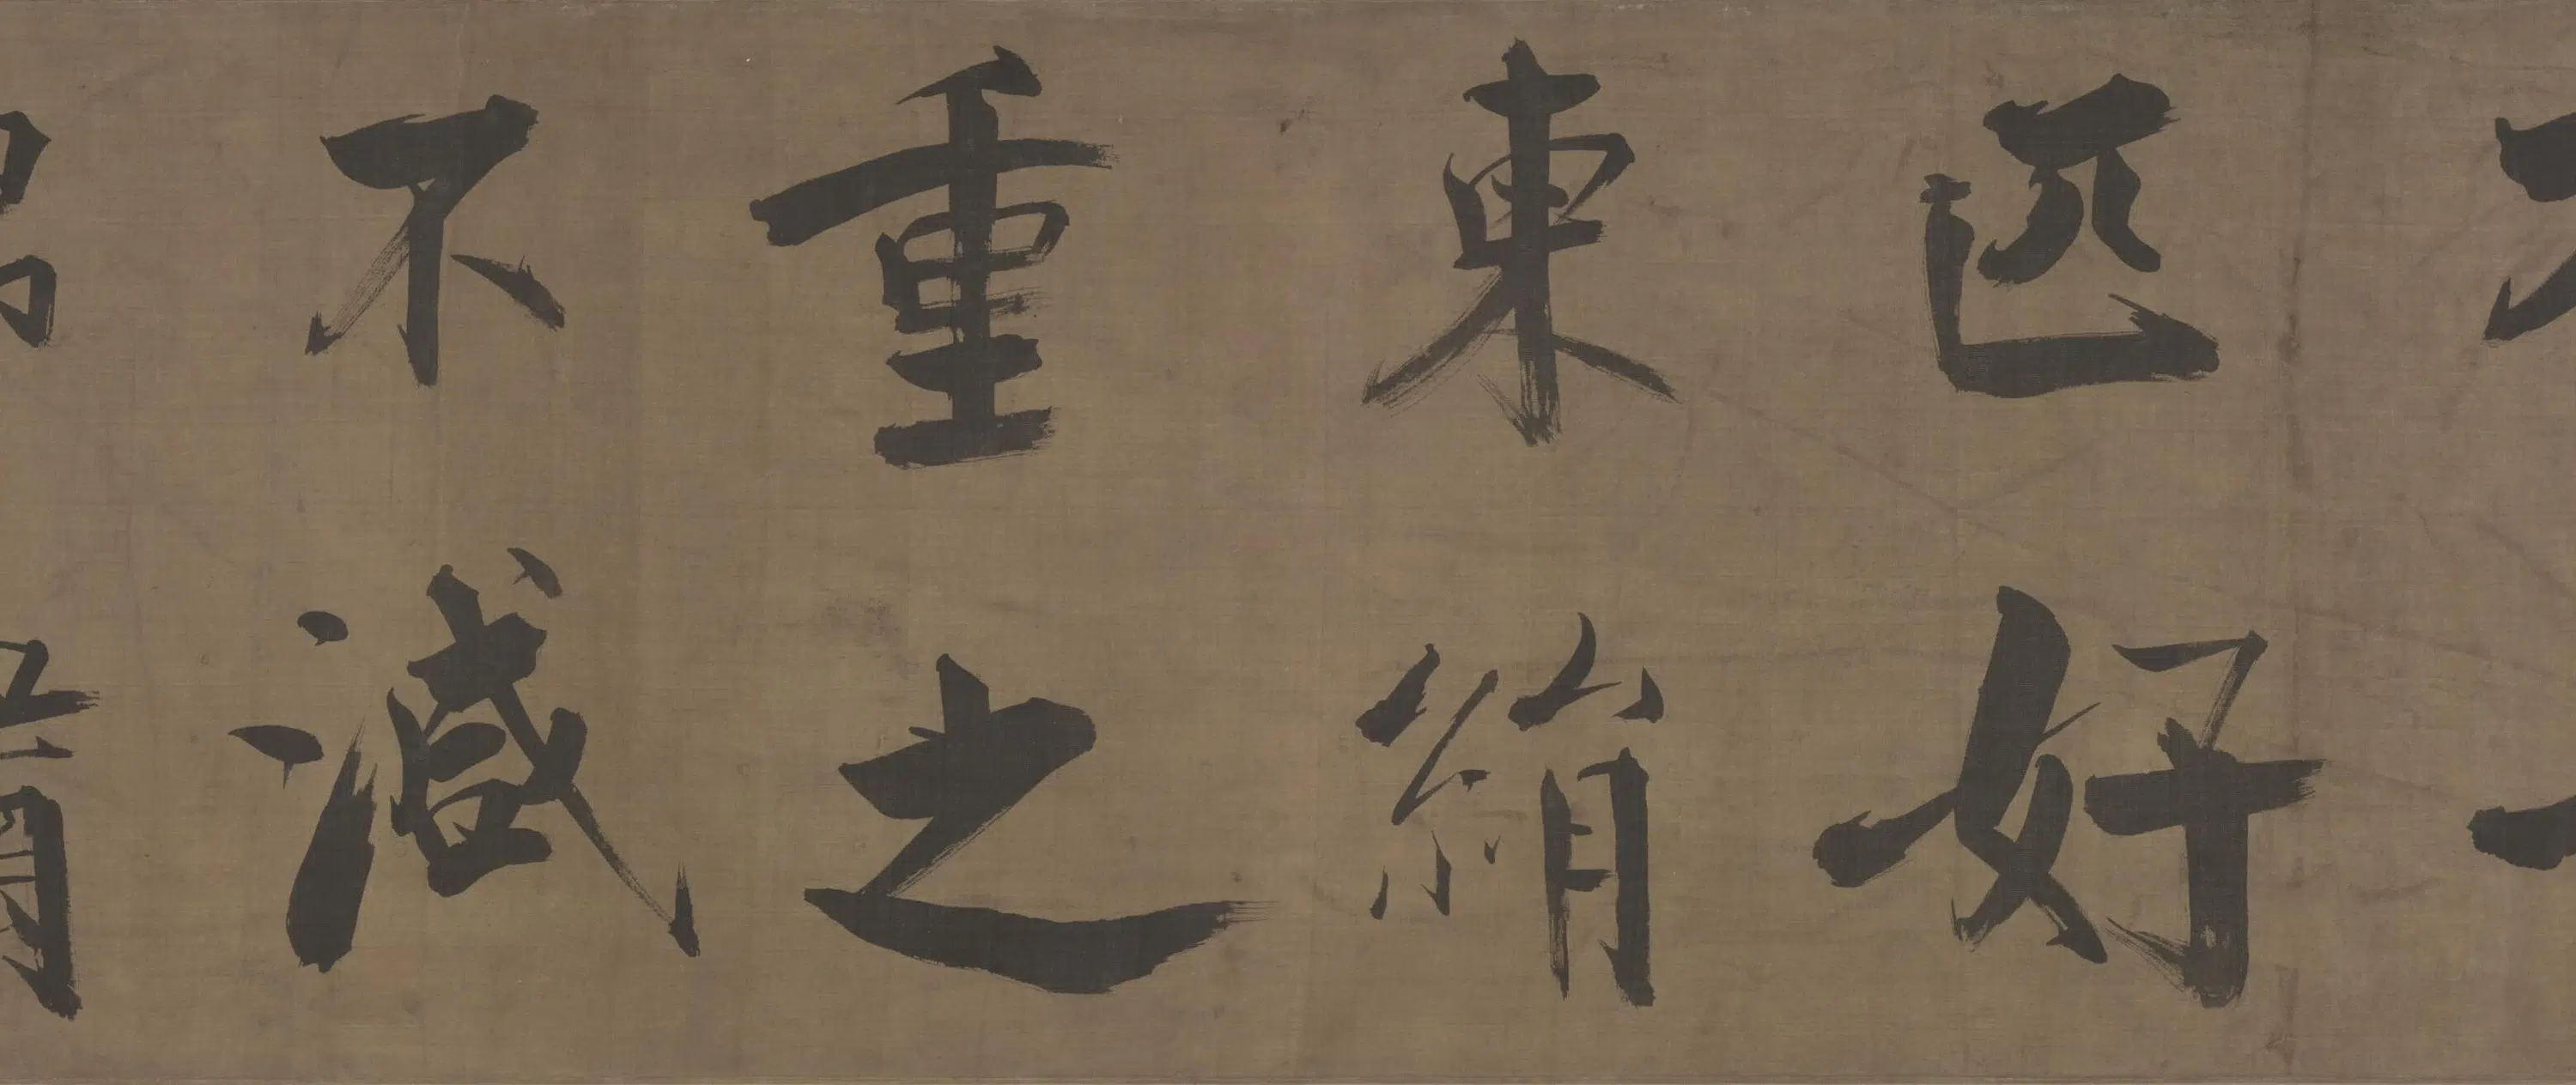 匹好
東絹
重之
不減